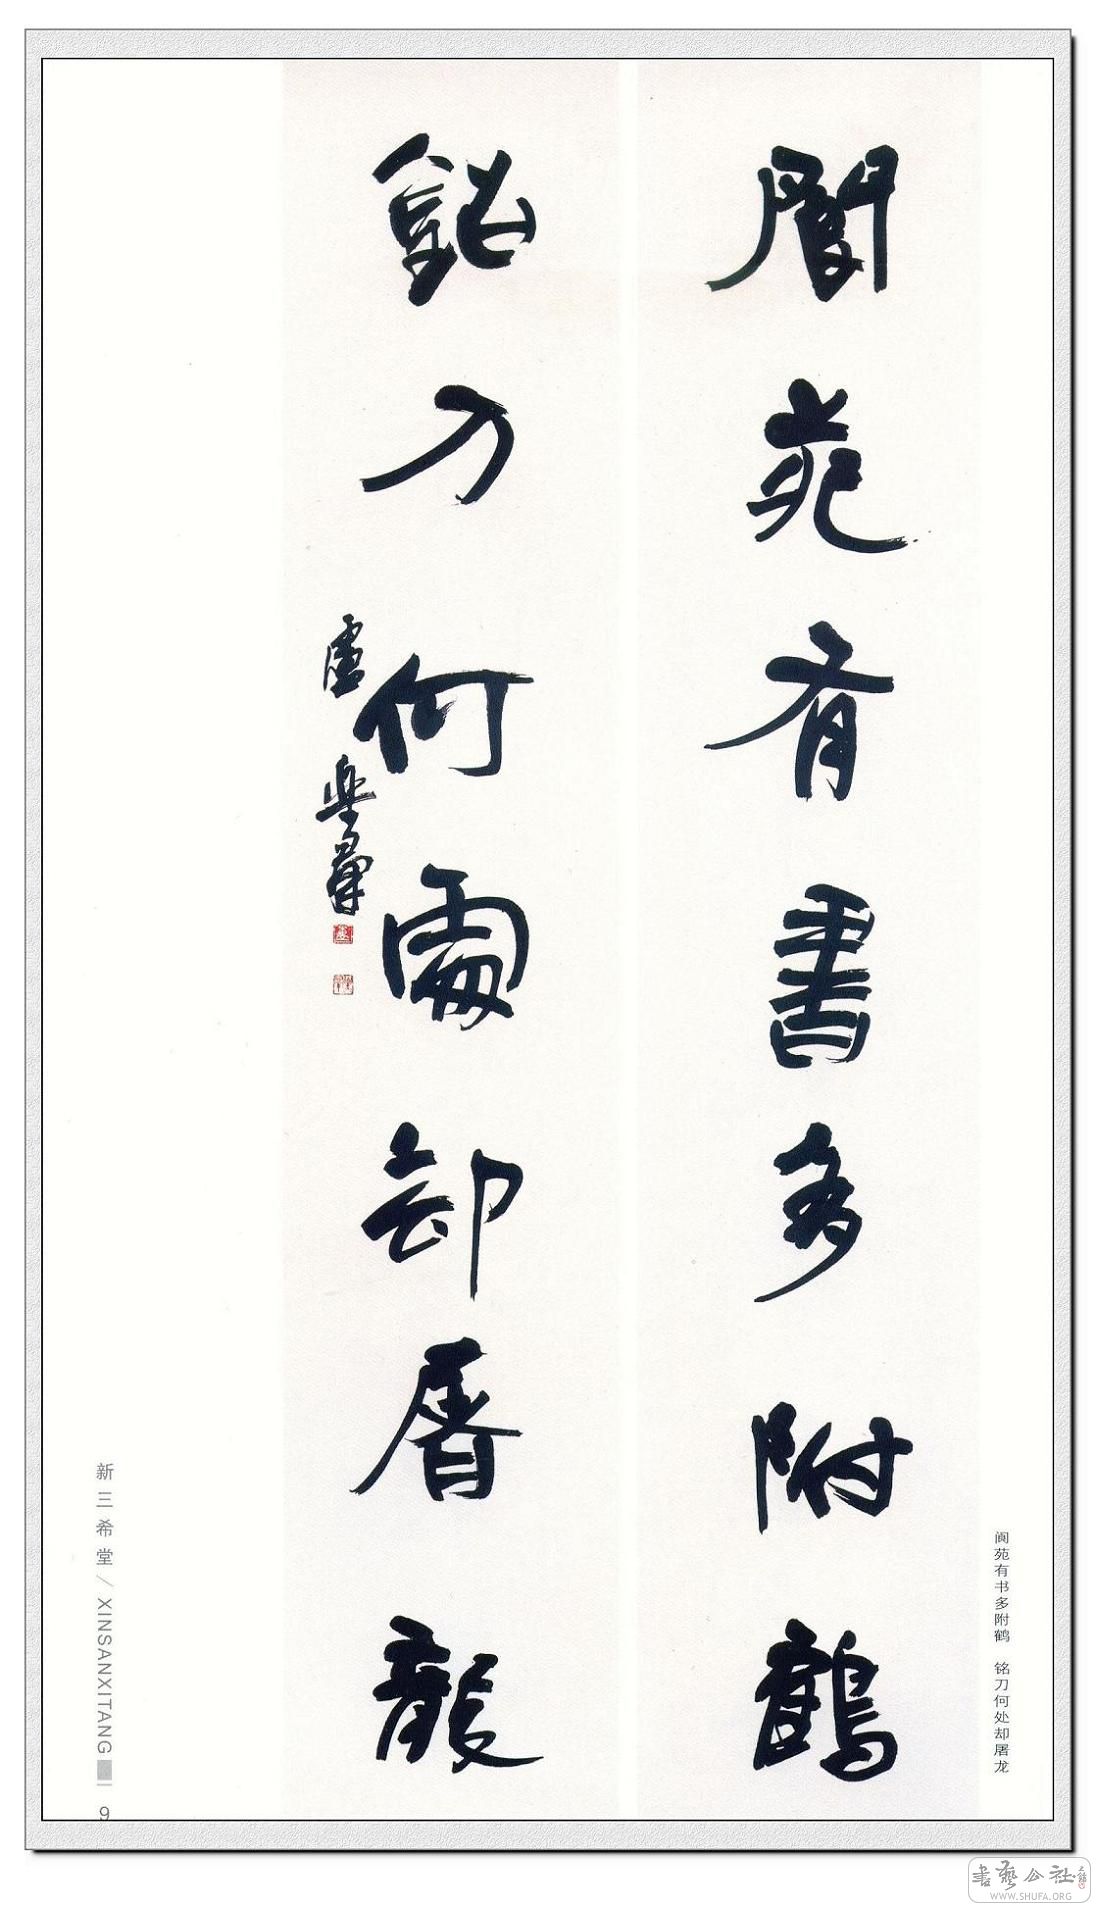 閬苑有書多附鶴
銘刀何處却屠龍
盧樂羣
阆苑有书多附鹤 铭刀何处却屠龙
新三希堂/XINSANXITANG 9
書藝公社
WWW.SHUFA.ORG